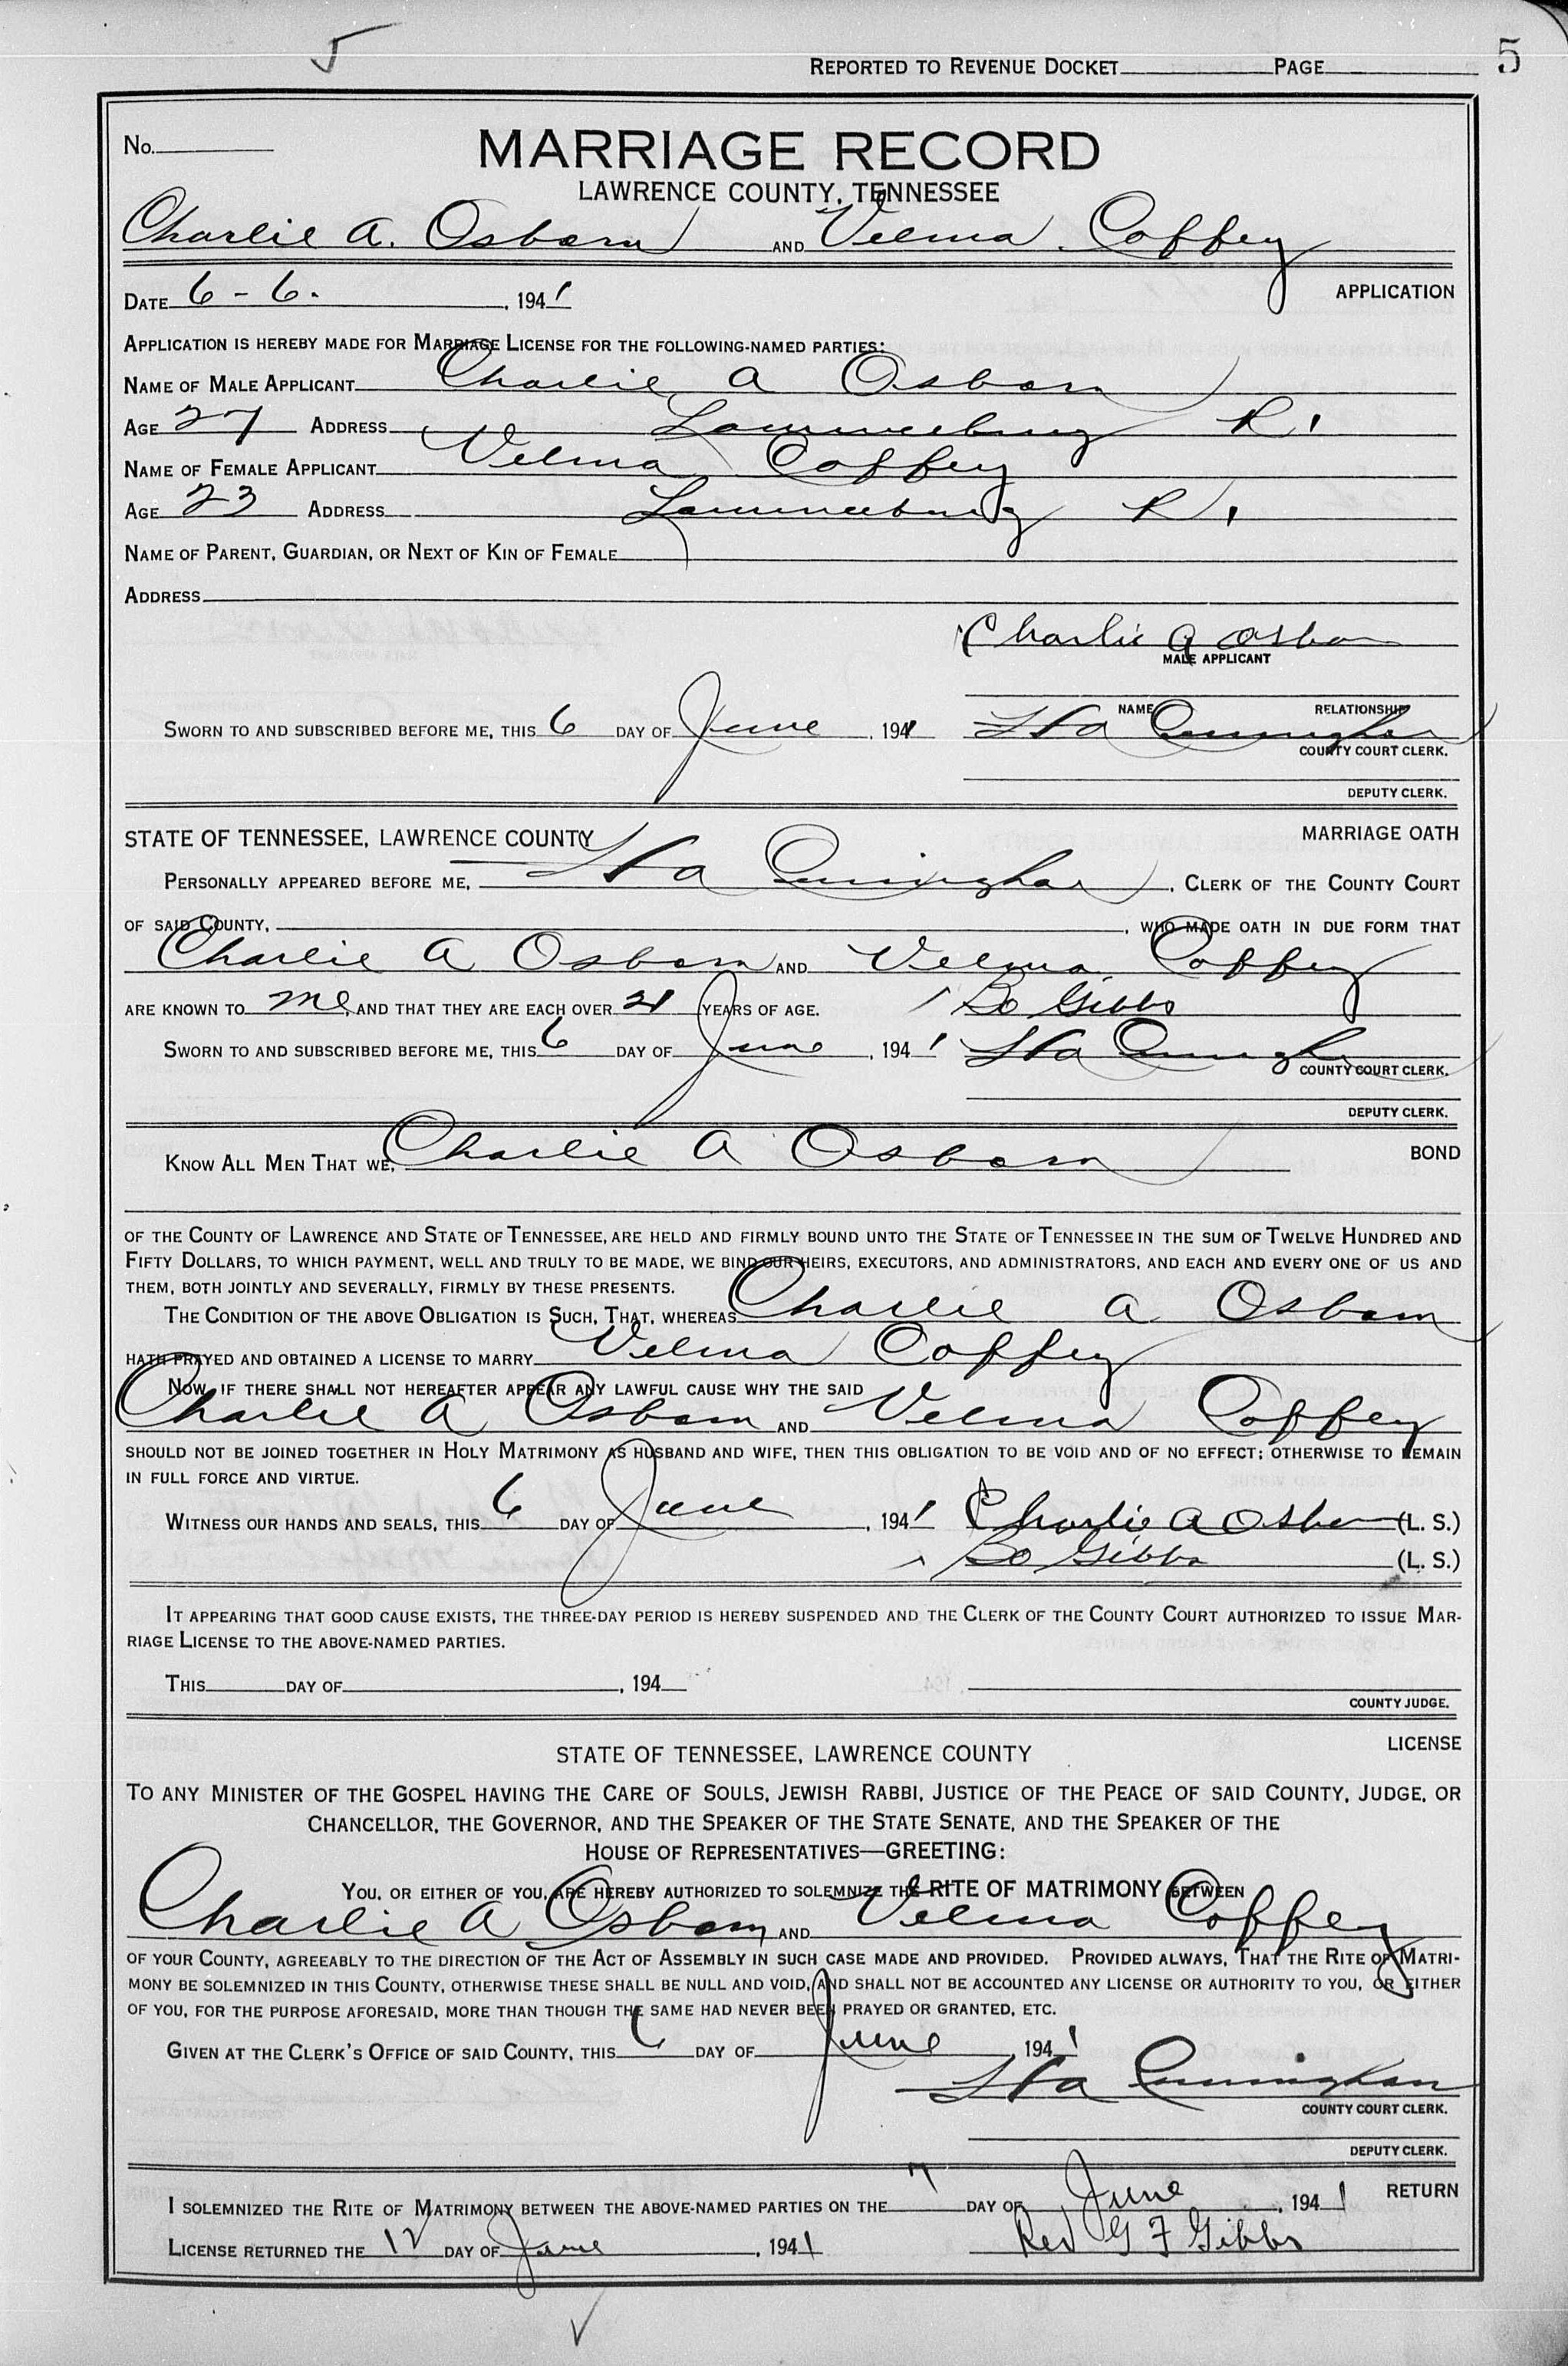 5
REPORTED TO REVENUE DOCKET PAGE
No.
MARRIAGE RECORD
LAWRENCE COUNTY, TENNESSEE
Charlie A. Osborn AND Velma Coffey
DATE 6-6. , 1941 APPLICATION
APPLICATION IS HEREBY MADE FOR MARRIAGE LICENSE FOR THE FOLLOWING-NAMED PARTIES:
NAME OF MALE APPLICANT Charlie A Osborn
AGE 27 ADDRESS R 1
NAME OF FEMALE APPLICANT Velma Coffey
AGE 23 ADDRESS R 1
NAME OF PARENT, GUARDIAN, OR NEXT OF KIN OF FEMALE
ADDRESS
Charlie A Osborn
MALE APPLICANT
NAME RELATIONSHIP
SWORN TO AND SUBSCRIBED BEFORE ME, THIS 6 DAY OF June , 1941
COUNTY COURT CLERK.
DEPUTY CLERK.
STATE OF TENNESSEE, LAWRENCE COUNTY MARRIAGE OATH
PERSONALLY APPEARED BEFORE ME, , CLERK OF THE COUNTY COURT
OF SAID COUNTY, , WHO MADE OATH IN DUE FORM THAT
Charlie A Osborn AND Velma Coffey
ARE KNOWN TO me, AND THAT THEY ARE EACH OVER 21 YEARS OF AGE. Bo Gibbs
SWORN TO AND SUBSCRIBED BEFORE ME, THIS 6 DAY OF June , 1941
COUNTY COURT CLERK.
DEPUTY CLERK.
KNOW ALL MEN THAT WE, Charlie A Osborn BOND
OF THE COUNTY OF LAWRENCE AND STATE OF TENNESSEE, ARE HELD AND FIRMLY BOUND UNTO THE STATE OF TENNESSEE IN THE SUM OF TWELVE HUNDRED AND
FIFTY DOLLARS, TO WHICH PAYMENT, WELL AND TRULY TO BE MADE, WE BIND OUR HEIRS, EXECUTORS, AND ADMINISTRATORS, AND EACH AND EVERY ONE OF US AND
THEM, BOTH JOINTLY AND SEVERALLY, FIRMLY BY THESE PRESENTS.
THE CONDITION OF THE ABOVE OBLIGATION IS SUCH, THAT, WHEREAS Charlie A Osborn
HATH PRAYED AND OBTAINED A LICENSE TO MARRY Velma Coffey
NOW, IF THERE SHALL NOT HEREAFTER APPEAR ANY LAWFUL CAUSE WHY THE SAID
Charlie A Osborn AND Velma Coffey
SHOULD NOT BE JOINED TOGETHER IN HOLY MATRIMONY AS HUSBAND AND WIFE, THEN THIS OBLIGATION TO BE VOID AND OF NO EFFECT; OTHERWISE TO REMAIN
IN FULL FORCE AND VIRTUE.
WITNESS OUR HANDS AND SEALS, THIS 6 DAY OF June , 1941 Charlie A Osborn (L. S.)
Bo Gibbs (L. S.)
IT APPEARING THAT GOOD CAUSE EXISTS, THE THREE-DAY PERIOD IS HEREBY SUSPENDED AND THE CLERK OF THE COUNTY COURT AUTHORIZED TO ISSUE MAR-
RIAGE LICENSE TO THE ABOVE-NAMED PARTIES.
THIS DAY OF , 194
COUNTY JUDGE.
LICENSE
STATE OF TENNESSEE, LAWRENCE COUNTY
TO ANY MINISTER OF THE GOSPEL HAVING THE CARE OF SOULS, JEWISH RABBI, JUSTICE OF THE PEACE OF SAID COUNTY, JUDGE, OR
CHANCELLOR, THE GOVERNOR, AND THE SPEAKER OF THE STATE SENATE, AND THE SPEAKER OF THE
HOUSE OF REPRESENTATIVES—GREETING:
YOU, OR EITHER OF YOU, ARE HEREBY AUTHORIZED TO SOLEMNIZE THE RITE OF MATRIMONY BETWEEN
Charlie A Osborn AND Velma Coffey
OF YOUR COUNTY, AGREEABLY TO THE DIRECTION OF THE ACT OF ASSEMBLY IN SUCH CASE MADE AND PROVIDED. PROVIDED ALWAYS, THAT THE RITE OF MATRI-
MONY BE SOLEMNIZED IN THIS COUNTY, OTHERWISE THESE SHALL BE NULL AND VOID, AND SHALL NOT BE ACCOUNTED ANY LICENSE OR AUTHORITY TO YOU, OR EITHER
OF YOU, FOR THE PURPOSE AFORESAID, MORE THAN THOUGH THE SAME HAD NEVER BEEN PRAYED OR GRANTED, ETC.
GIVEN AT THE CLERK'S OFFICE OF SAID COUNTY, THIS 6 DAY OF June , 1941
COUNTY COURT CLERK.
DEPUTY CLERK.
RETURN
I SOLEMNIZED THE RITE OF MATRIMONY BETWEEN THE ABOVE-NAMED PARTIES ON THE 7 DAY OF June , 1941
LICENSE RETURNED THE 12 DAY OF June , 1941 Rev G F Gibbs